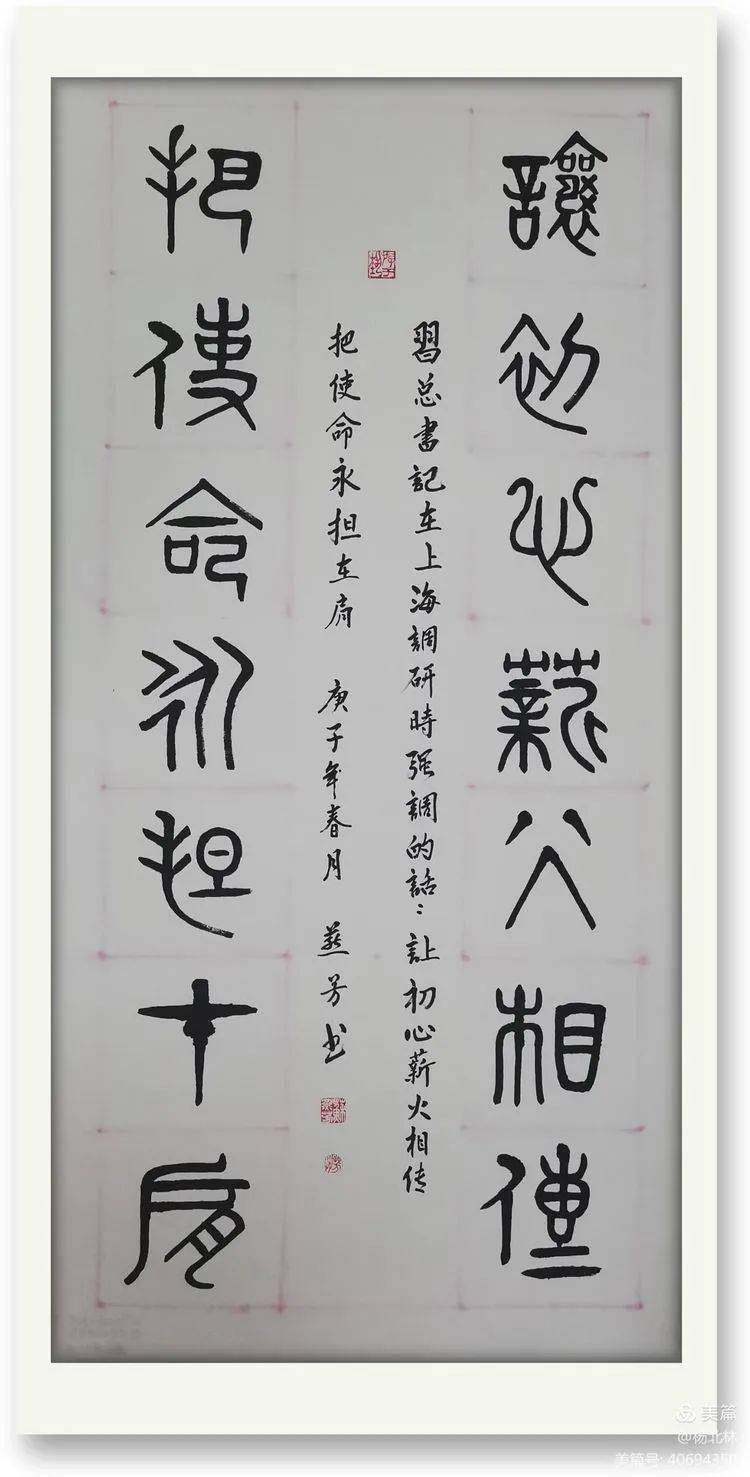 讓初心薪火相傳
習总書記在上海調研時强調的話：让初心薪火相传
把使命永担在肩 庚子年春月 燕芳书
把使命永担在肩
美篇
@杨北林
美篇号: 4069435